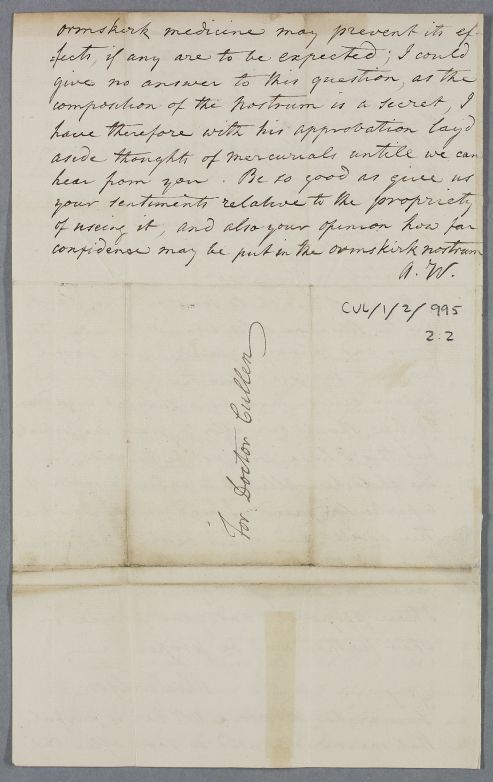 ormskirk medicine may prevent its ef-
-fects, if any are to be expected; I could
give no answer to this question, as the
composition of the Nostrum is a secret, I
have therefore with his approbation lay'd
aside thoughts of mercurials untill we can
hear from you. Be so good as give us
your sentiments relative to the propriety
of useing it, and also your opinion how far
confidence may be put in the ormskirk nostrum
A. W.
CUL/1/2/995
2.2
For Doctor Cullen